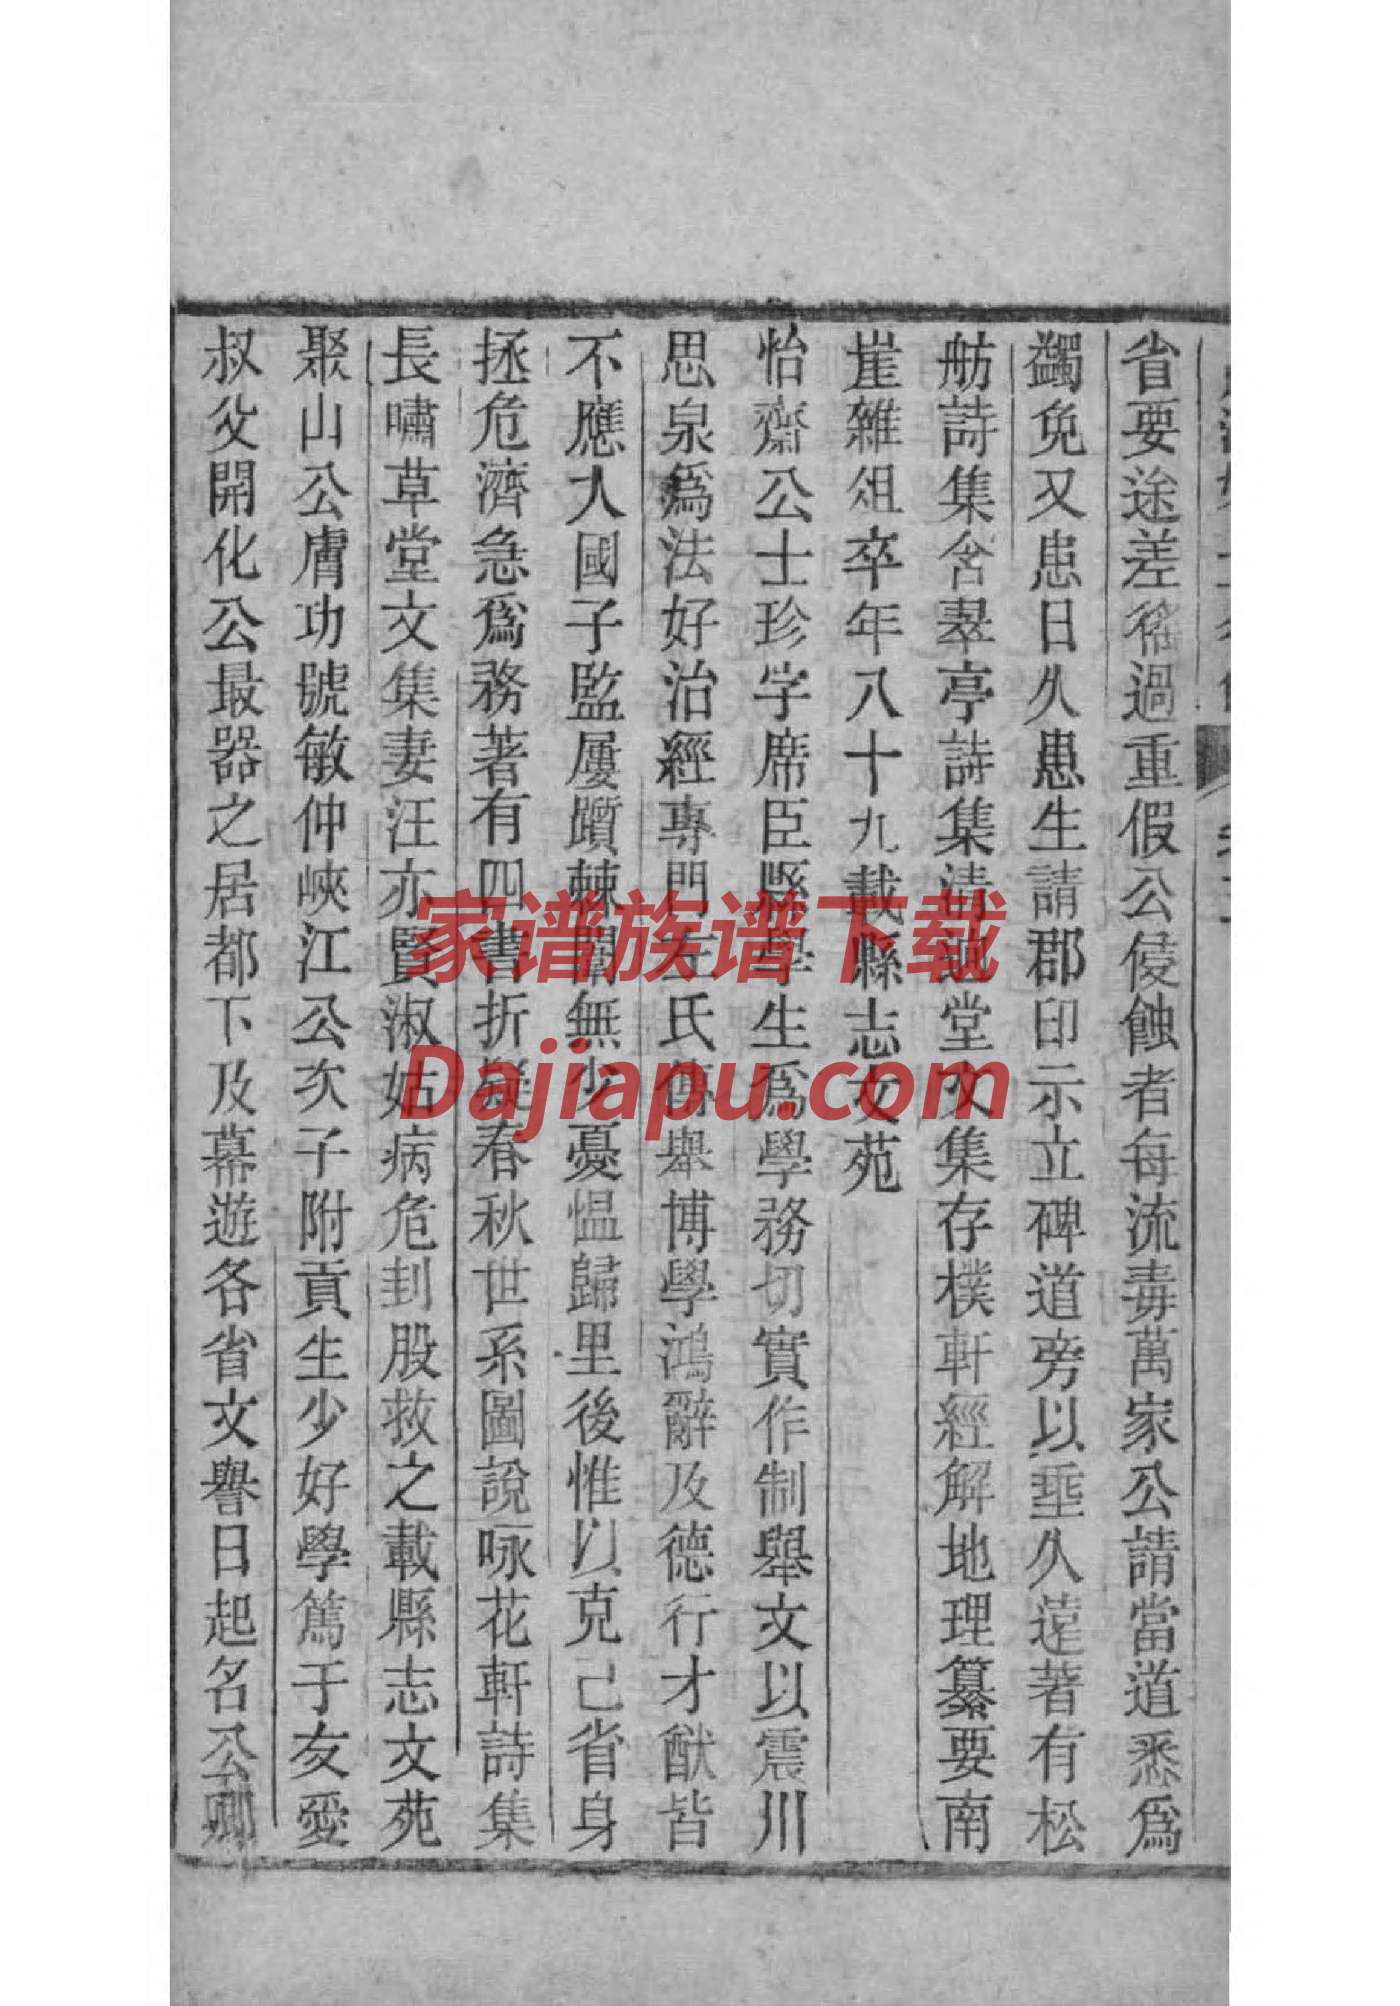 省要途差徭過重假公侵蝕者每流毒萬家公請當道悉爲
蠲免又患日久患生請郡印示立碑道旁以垂久遠著有松
舫詩集含翠亭詩集清 堂文集存樸軒經解地理纂要南
崖雜俎卒年八十九載縣志文苑
怡齋公士珍字席臣縣學生爲學務切實作制舉文以震川
思泉爲法好治經專門左氏傳舉博學鴻辭及德行才猷皆
不應入國子監屢躓棘闈無少憂愠歸里後惟以克己省身
拯危濟急爲務著有四書折疑春秋世系圖說咏花軒詩集
長嘯草堂文集妻汪亦賢淑姑病危刲股救之載縣志文苑
聚山公膚功號敏仲峽江公次子附貢生少好學篤于友愛
叔父開化公最器之居都下及幕遊各省文譽日起名公卿
家谱族谱下载
Dajiapu.com